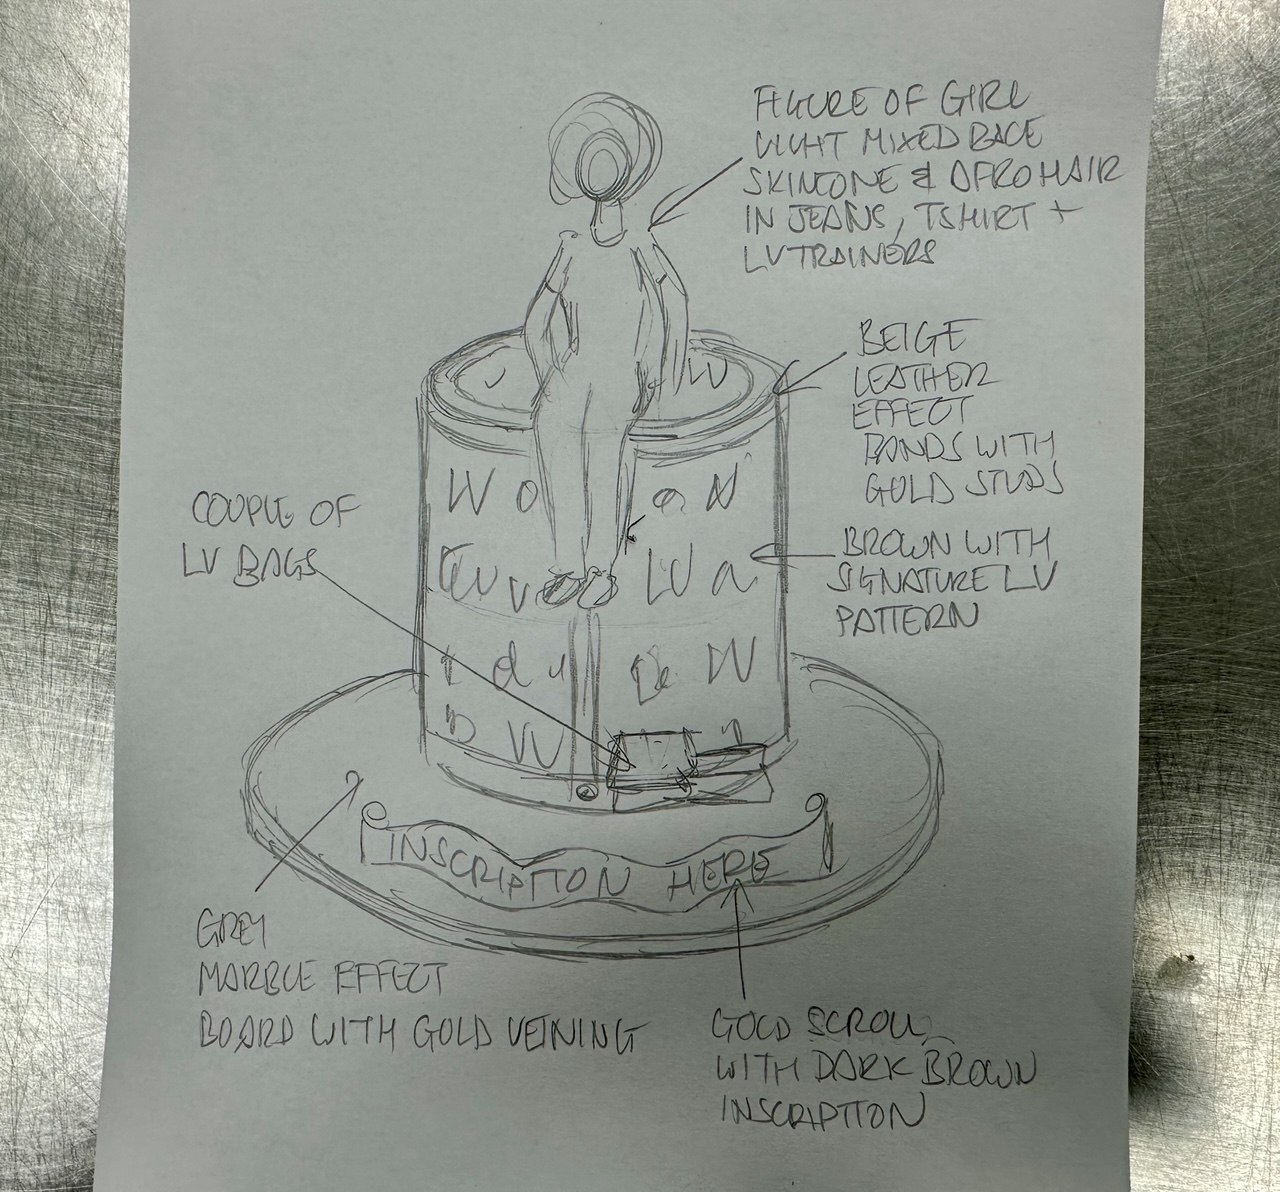 FIGURE OF GIRL
LIGHT MIXED RACE
SKINTONE & AFRO HAIR
IN JEANS, TSHIRT +
LV TRAINERS
BEIGE
LEATHER
EFFECT
BANDS WITH
GOLD STUDS
COUPLE OF
LV BAGS
BROWN WITH
SIGNATURE LV
PATTERN
INSCRIPTION HERE
GREY
MARBLE EFFECT
BOARD WITH GOLD VEINING
GOLD SCROLL
WITH DARK BROWN
INSCRIPTION